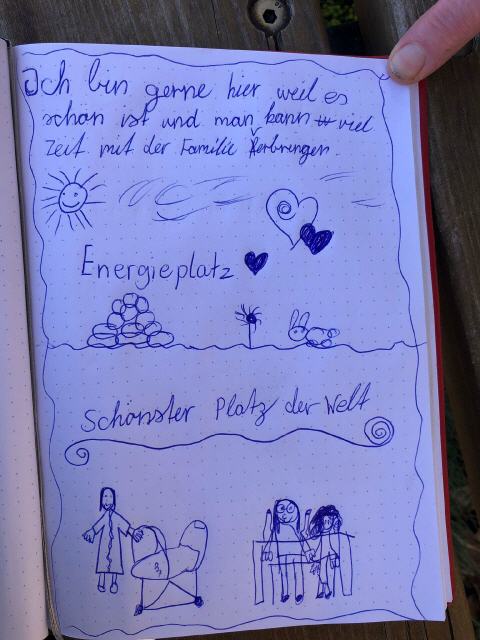 Ich bin gerne hier weil es
schön ist und man kann viel
Zeit mit der Familie Verbringen.
Energieplatz
Schönster Platz der Welt